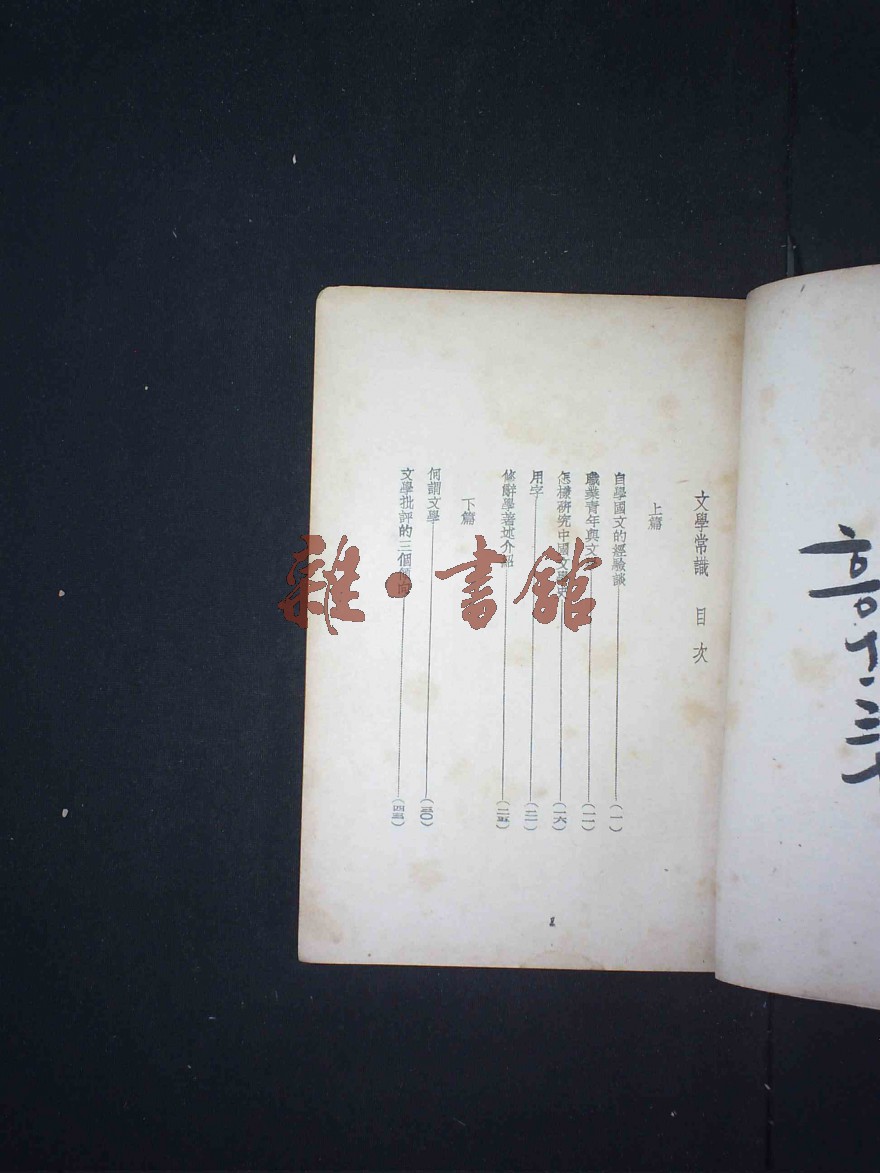 文學常識 目次
上篇
自學國文的經驗談 (一)
職業青年與文 (一一)
怎樣研究中國文學史 (一六)
用字 (二一)
修辭學著述介紹 (二五)
下篇
何謂文學 (三〇)
文學批評的三個傾向 (四五)
雜·書館